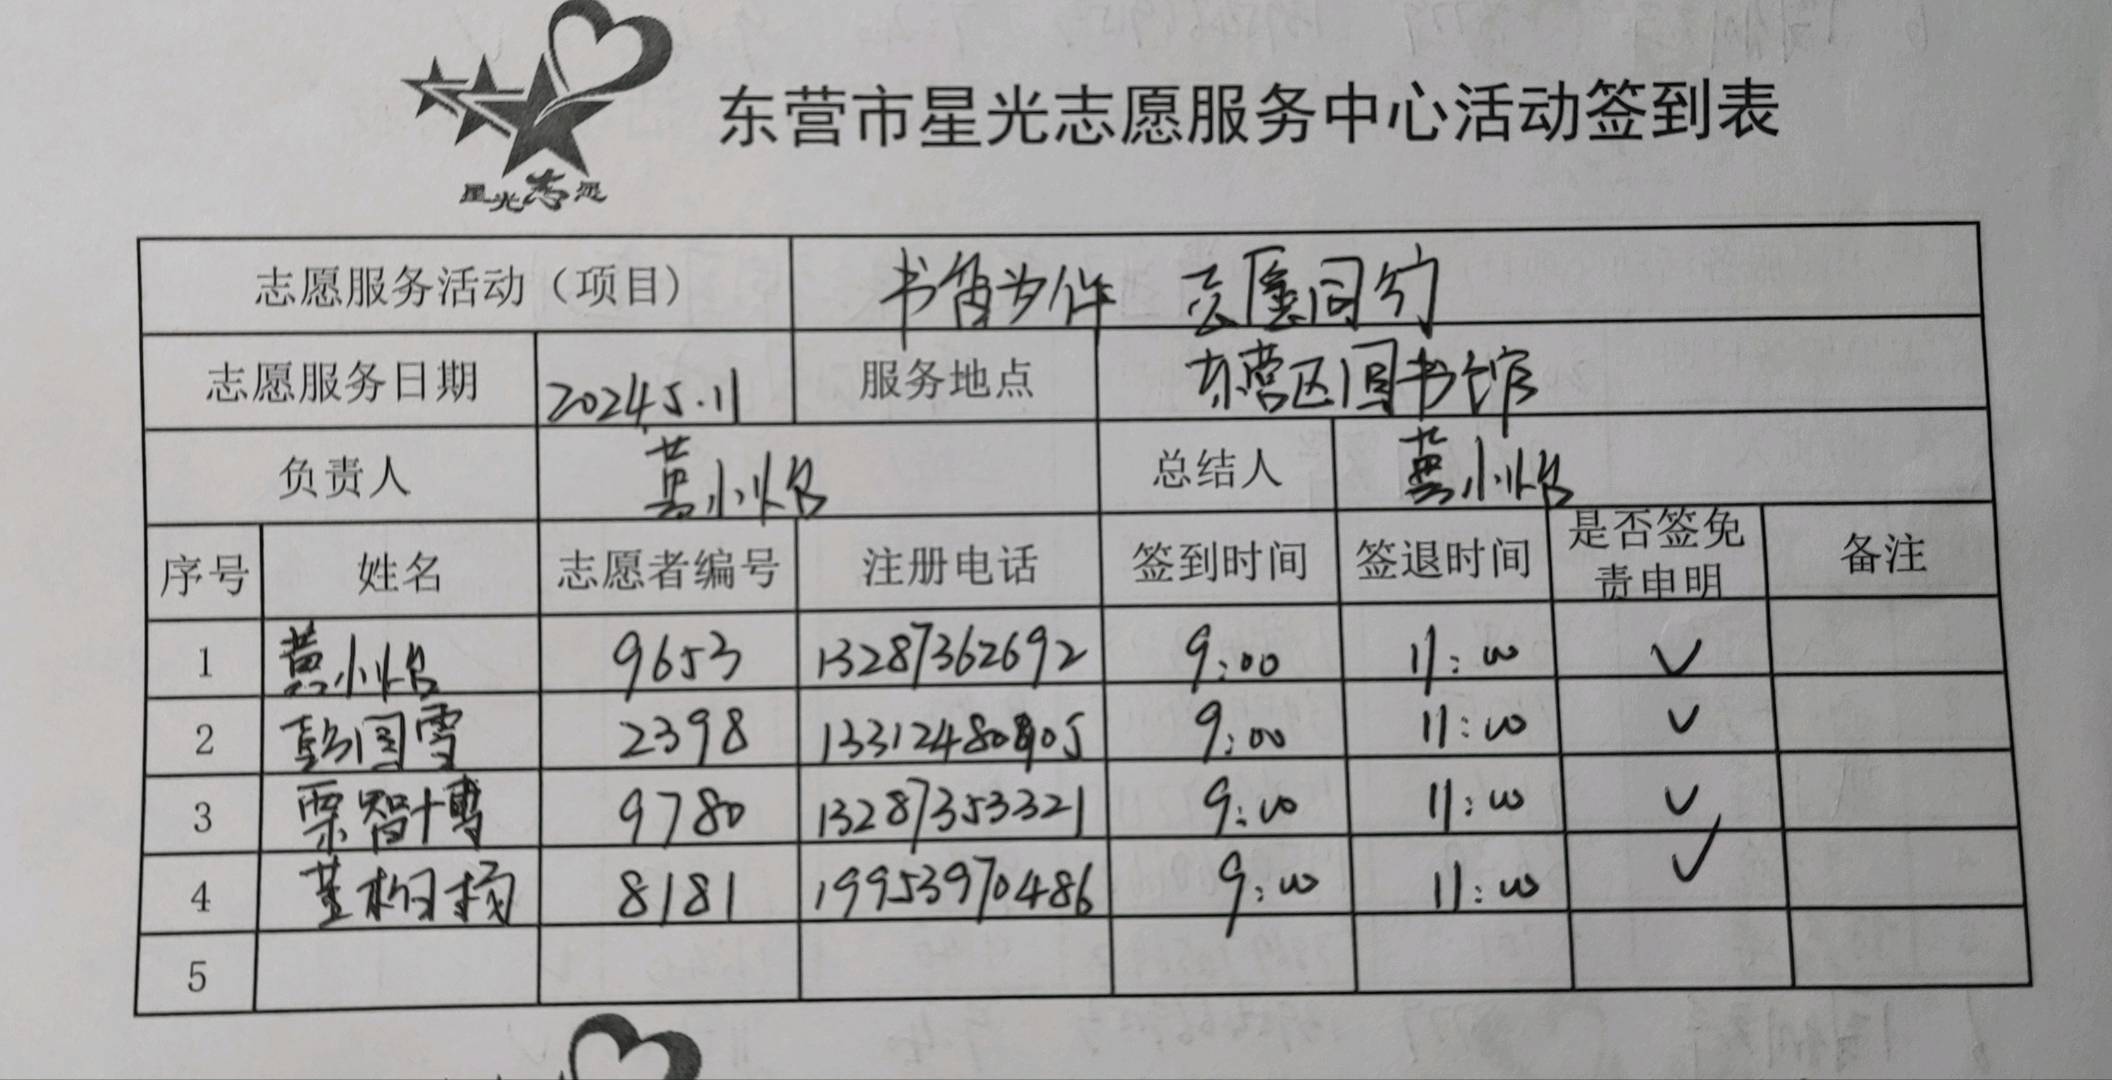 星光志愿
东营市星光志愿服务中心活动签到表
志愿服务活动（项目） 书香为伴 志愿同行
志愿服务日期 2024.5.11 服务地点 东营区图书馆
负责人 黄小怡 总结人 黄小怡
序号 姓名 志愿者编号 注册电话 签到时间 签退时间 是否签免责申明 备注
1 黄小怡 9653 13287362692 9:00 11:00 ✓
2 彭国雪 2398 9:00 11:00 ✓
3 栗智博 9780 13287353321 9:00 11:00 ✓
4 董柏杨 8181 19953970486 9:00 11:00 ✓
5